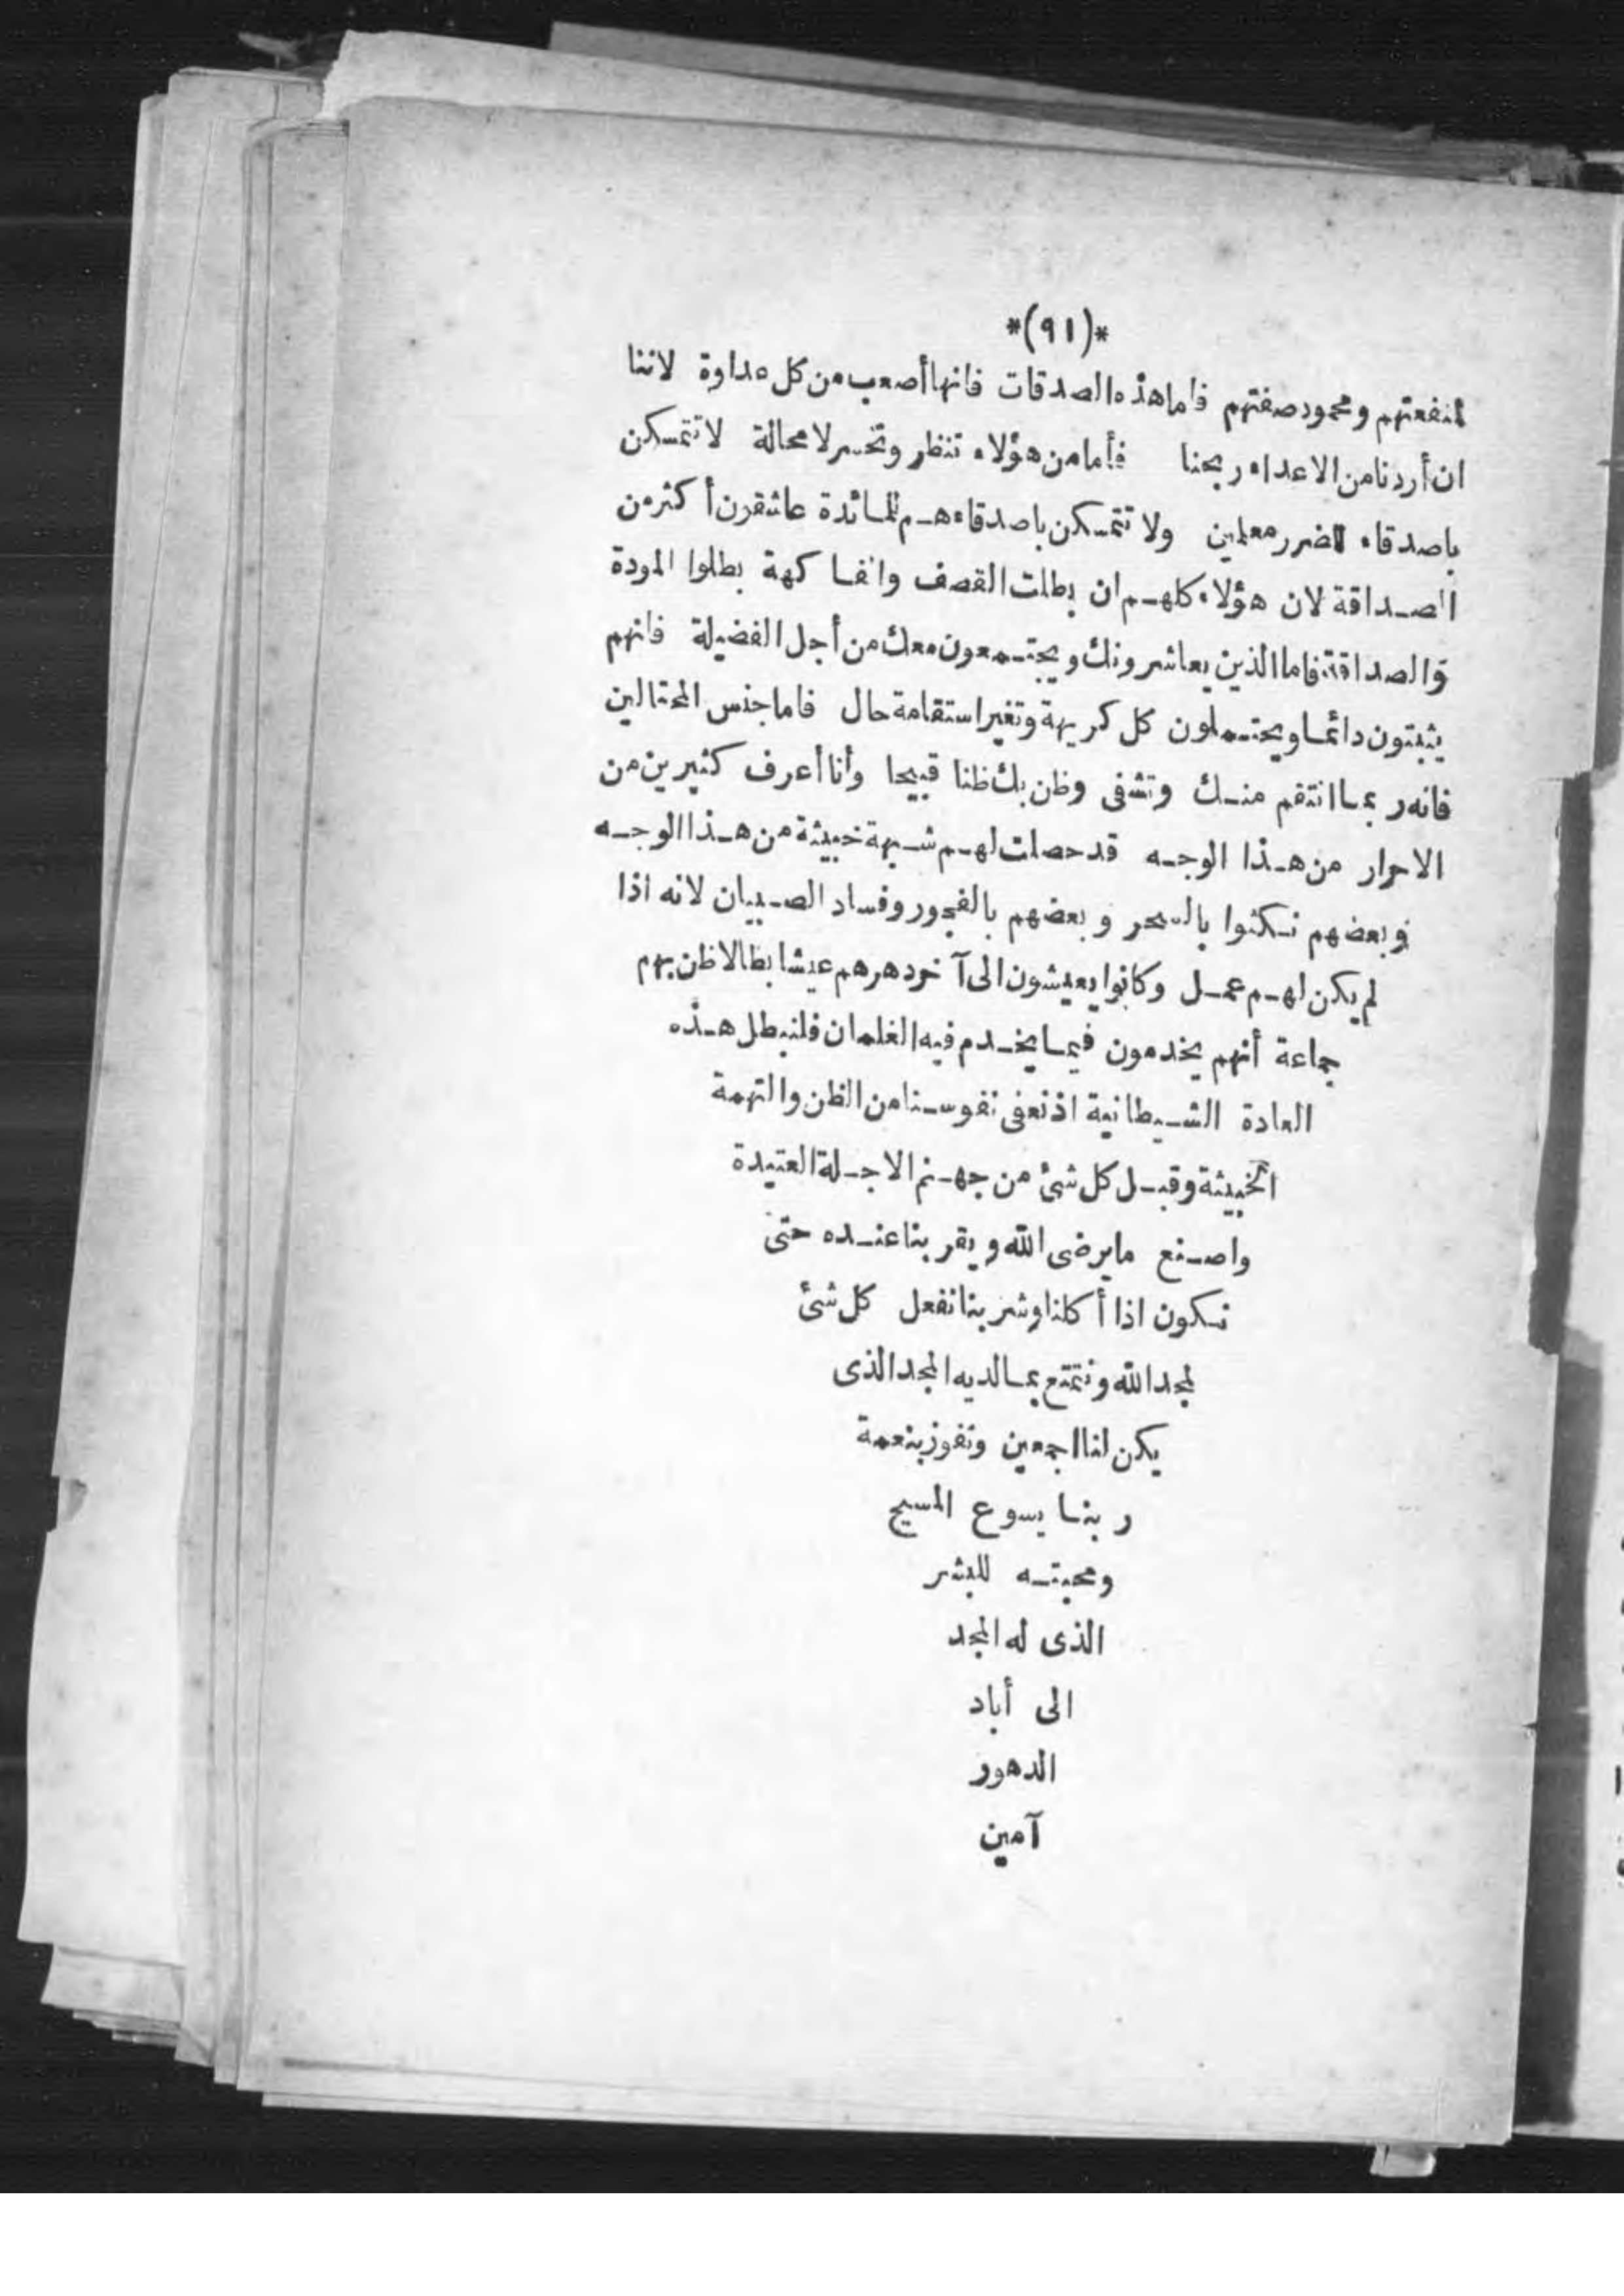 *(٩١)*
لمنفعتهم ومحمود صفتهم فاما هذه الصدقات فانها أصعب من كل عداوة لاننا
ان أردنا من الاعداء ربحنا فأما من هؤلاء تنظر وتخسر لا محالة لا تتمسكن
باصدقاء للضرر معلمين ولا تتمسكن باصدقاء هم للمائدة عاشقون أكثر من
الصداقة لان هؤلاء كلهم ان بطلت القصف والفاكهة بطلوا المودة
والصداقة فاما الذين يعاشرونك ويجتمعون معك من أجل الفضيلة فانهم
يثبتون دائما ويحتملون كل كريهة وتغير استقامة حال فاما جنس المحتالين
فانه ربما انتقم منك وتشفى وظن بك ظنا قبيحا وأنا أعرف كثيرين من
الاحرار من هذا الوجه قد حصلت لهم شبهة خبيثة من هذا الوجه
وبعضهم نكثوا بالسحر وبعضهم بالفجور وفساد الصبيان لانه اذا
لم يكن لهم عمل وكانوا يعيشون الى آخر دهرهم عيشا بطالا ظن بهم
جماعة أنهم يخدمون فيما يخدم فيه الغلمان فلنبطل هذه
العادة الشيطانية اذ نعفى نفوسنا من الظن والتهمة
الخبيثة وقبل كل شئ من جهنم الاجلة العتيدة
واصنع ما يرضى الله ويقربنا عنده حتى
نكون اذا أكلنا وشربنا نفعل كل شئ
لمجد الله ونتمتع بما لديه المجد الذى
يكن لنا اجمعين ونفوز بنعمة
ربنا يسوع المسيح
ومحبته للبشر
الذى له المجد
الى أباد
الدهور
آمين